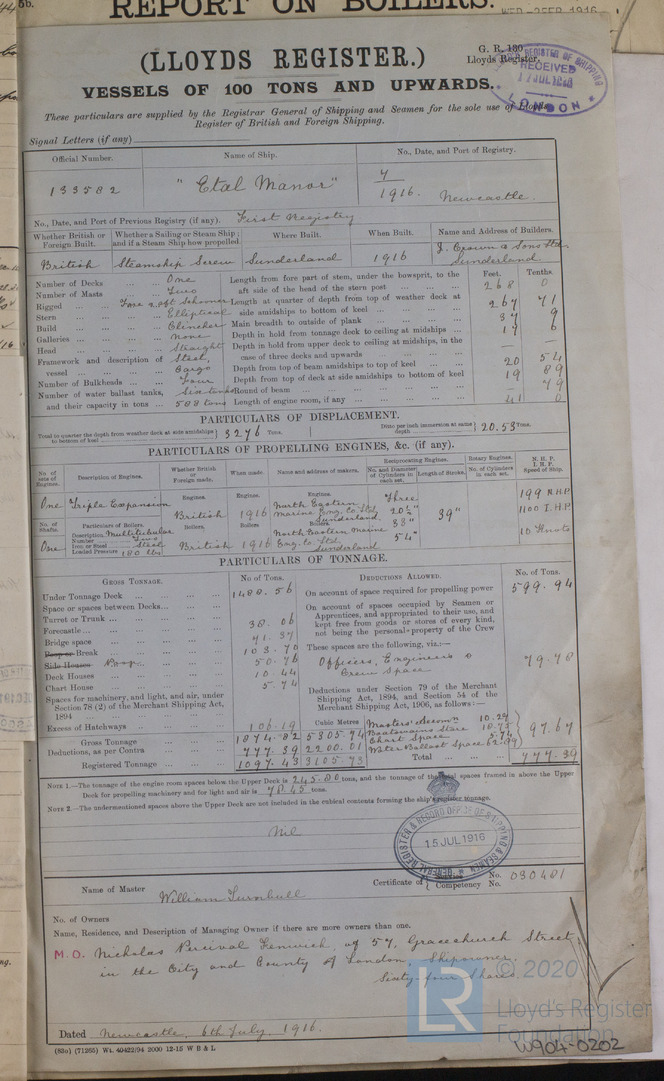 REPORT ON BOILERS.
WED. 2 FEB 1916
(LLOYDS REGISTER.)
G. R. 130
Lloyds Register.
REGISTER OF SHIPPING
RECEIVED
17 JUL 1916
LONDON
VESSELS OF 100 TONS AND UPWARDS.
These particulars are supplied by the Registrar General of Shipping and Seamen for the sole use of Lloyds
Register of British and Foreign Shipping.
Signal Letters (if any)
Official Number. Name of Ship. No., Date, and Port of Registry.
133582 "Etal Manor" 7/1916. Newcastle.
No., Date, and Port of Previous Registry (if any). First Registry
Whether British or Foreign Built. Whether a Sailing or Steam Ship; and if a Steam Ship how propelled. Where Built. When Built. Name and Address of Builders.
British Steamship Screw Sunderland 1916 J. Crown & Sons Ltd Sunderland
Number of Decks ... One
Number of Masts ... Two
Rigged ... Fore & aft Schooner
Stern ... Elliptical
Build ... Clencher
Galleries ... None
Head ... Straight
Framework and description of vessel ... Steel, Cargo
Number of Bulkheads ... Four
Number of water ballast tanks, and their capacity in tons ... Six tanks 588 tons
Feet. Tenths.
Length from fore part of stem, under the bowsprit, to the aft side of the head of the stern post 268 0
Length at quarter of depth from top of weather deck at side amidships to bottom of keel 267 71
Main breadth to outside of plank 37 9
Depth in hold from tonnage deck to ceiling at midships 17 6
Depth in hold from upper deck to ceiling at midships, in the case of three decks and upwards — —
Depth from top of beam amidships to top of keel 20 54
Depth from top of deck at side amidships to bottom of keel 19 89
Round of beam 79
Length of engine room, if any 41 0
PARTICULARS OF DISPLACEMENT.
Total to quarter the depth from weather deck at side amidships to bottom of keel 3276 Tons. Ditto per inch immersion at same depth 20.53 Tons.
PARTICULARS OF PROPELLING ENGINES, &c. (if any).
No. of sets of Engines. Description of Engines. Whether British or Foreign made. When made. Name and address of makers. Reciprocating Engines. No. and Diameter of Cylinders in each set. Length of Stroke. Rotary Engines. No. of Cylinders in each set. N.H.P. I.H.P. Speed of Ship.
One Triple Expansion Engines. British Engines. 1916 Engines. North Eastern Marine Eng. Co. Ltd Sunderland Three 20½" 33" 54" 39" 199 N.H.P. 1100 I.H.P. 10 Knots
No. of Shafts. Particulars of Boilers. Boilers. Boilers Boilers
One Description Multitubular Number Two Iron or Steel Steel Loaded Pressure 180 lbs British 1916 North Eastern Marine Eng. Co. Ltd. Sunderland
PARTICULARS OF TONNAGE.
GROSS TONNAGE. No of Tons.
Under Tonnage Deck ... 1488.56
Space or spaces between Decks...
Turret or Trunk ...
Forecastle ... 38.06
Bridge space ... 41.37
Poop or Break ... 103.70
Side Houses Poop ... 50.76
Deck Houses ... 10.44
Chart House ... 5.74
Spaces for machinery, and light, and air, under Section 78 (2) of the Merchant Shipping Act, 1894
Excess of Hatchways ... 106.19
Cubic Metres
Gross Tonnage 1874.82 5305.74
Deductions, as per Contra 777.39 2200.01
Registered Tonnage 1097.43 3105.73
DEDUCTIONS ALLOWED. No. of Tons.
On account of space required for propelling power 599.94
On account of spaces occupied by Seamen or Apprentices, and appropriated to their use, and kept free from goods or stores of every kind, not being the personal property of the Crew
These spaces are the following, viz.:—
Officers, Engineers & Crew Space 79.78
Deductions under Section 79 of the Merchant Shipping Act, 1894, and Section 54 of the Merchant Shipping Act, 1906, as follows:—
Master's Accomn 10.29
Boatswains Store 18.73
Chart Space 5.74
Water Ballast Space 62.91
97.67
Total 777.39
NOTE 1.—The tonnage of the engine room spaces below the Upper Deck is 245.80 tons, and the tonnage of the total spaces framed in above the Upper
Deck for propelling machinery and for light and air is 70.45 tons.
NOTE 2.—The undermentioned spaces above the Upper Deck are not included in the cubical contents forming the ship's register tonnage.
Nil
REGISTER & RECORD OFFICE OF SHIPPING & SEAMEN
15 JUL 1916
Name of Master William Turnbull Certificate of Service No. Competency No. 030401
No. of Owners
Name, Residence, and Description of Managing Owner if there are more owners than one.
M.O. Nicholas Percival Fenwick, of 57, Gracechurch Street,
in the City and County of London, Shipowner.
Sixty-four Shares.
Dated Newcastle, 6th July, 1916.
(83o) (71265) Wt. 40422/94 2000 12-15 W B & L
LR
© 2020
Lloyd's Register
Foundation
W904-0202